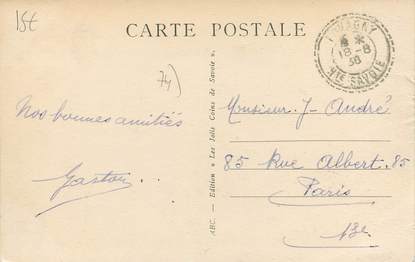 15t
CARTE POSTALE
74)
LOVAGNY
18-8
38
HTE SAVOIE
Nos bonnes amitiés
Gaston
ABC. — Edition « Les Jolis Coins de Savoie ».
Monsieur J- André
85 Rue Albert. 85
Paris
13e